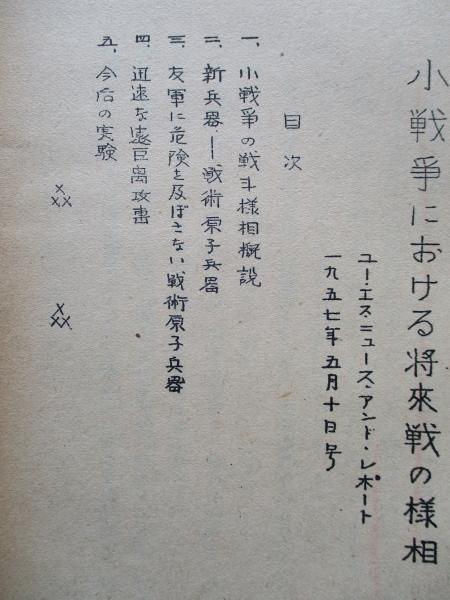 小戦爭における将來戦の様相
ユー・エス・ニュース・アンド・レポート
一九五七年五月十日号
目次
一、小戦爭の戦斗様相概説
二、新兵器ー戦術原子兵器
三、友軍に危険を及ぼさない戦術原子兵器
四、迅速な遠距离攻撃
五、今后の実験